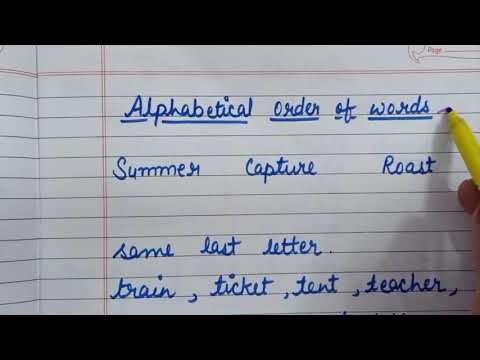 Page
Alphabetical order of words
Summer Capture Roast
same last letter.
train, ticket, tent, teacher,